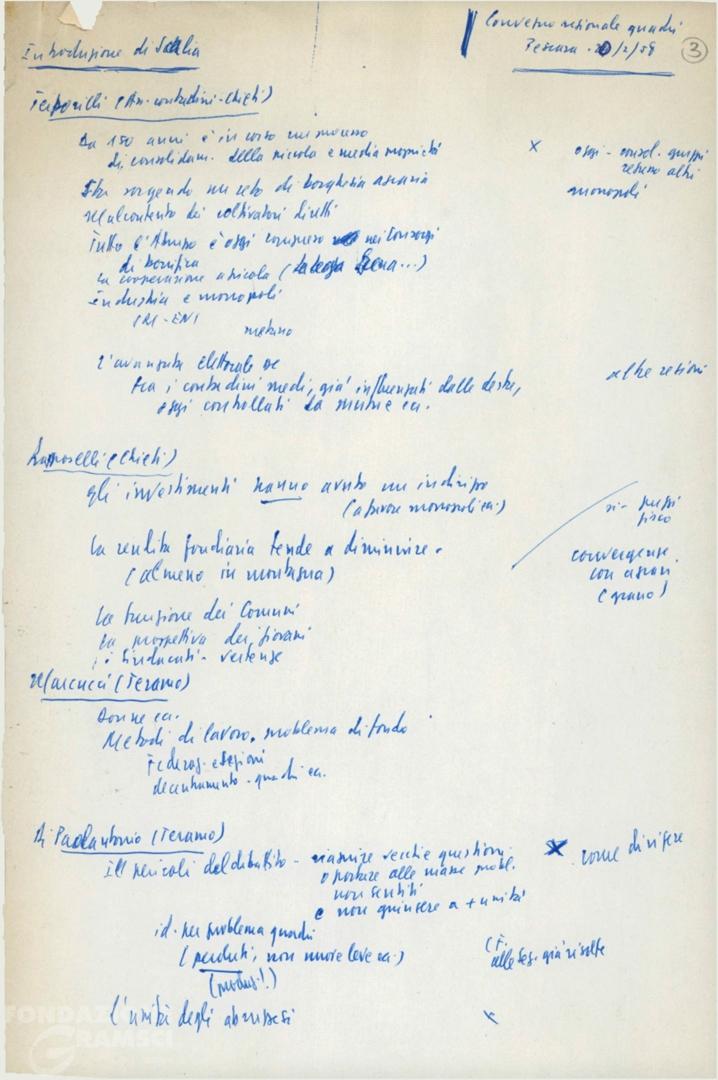 Convegno regionale quadri
Pescara - 20/2/59
3
Introduzione di Scalia
(An. contadini - Chieti)
Da 150 anni è in corso un processo
di consolidam. della piccola e media proprietà
x oggi - consol. gruppi
Sta sorgendo un ceto di borghesia agraria
monopoli
Malcontento dei coltivatori diretti
Tutto l'Abruzzo è oggi compreso nei Consorzi
di bonifica
La cooperazione agricola
Industria e monopoli
IRI - ENI
metano
L'avanzata elettorale DC
altre regioni
tra i contadini medi, già influenzati dalle destre,
oggi controllati da ecc.
(Chieti)
gli investimenti hanno avuto un indirizzo
(a favore monopoli ecc.)
La rendita fondiaria tende a diminuire.
(almeno in montagna)
convergenze
con agrari
(grano)
La funzione dei Comuni
La prospettiva dei giovani
i sindacati - vertenze
Marcucci (Teramo)
Donne ecc.
Metodi di lavoro, problema di fondo
Federaz. e sezioni
decentramento - quadri ecc.
Di Paolantonio (Teramo)
Il pericoli del dibattito - vecchie questioni
x come dirigere
o portare alle masse probl.
non sentiti
e non giungere a + unità
id. per problema quadri
(perduti, non nuove leve ecc.)
alle sez. già risolte
L'unità degli abruzzesi
x
FONDAZIONE
GRAMSCI